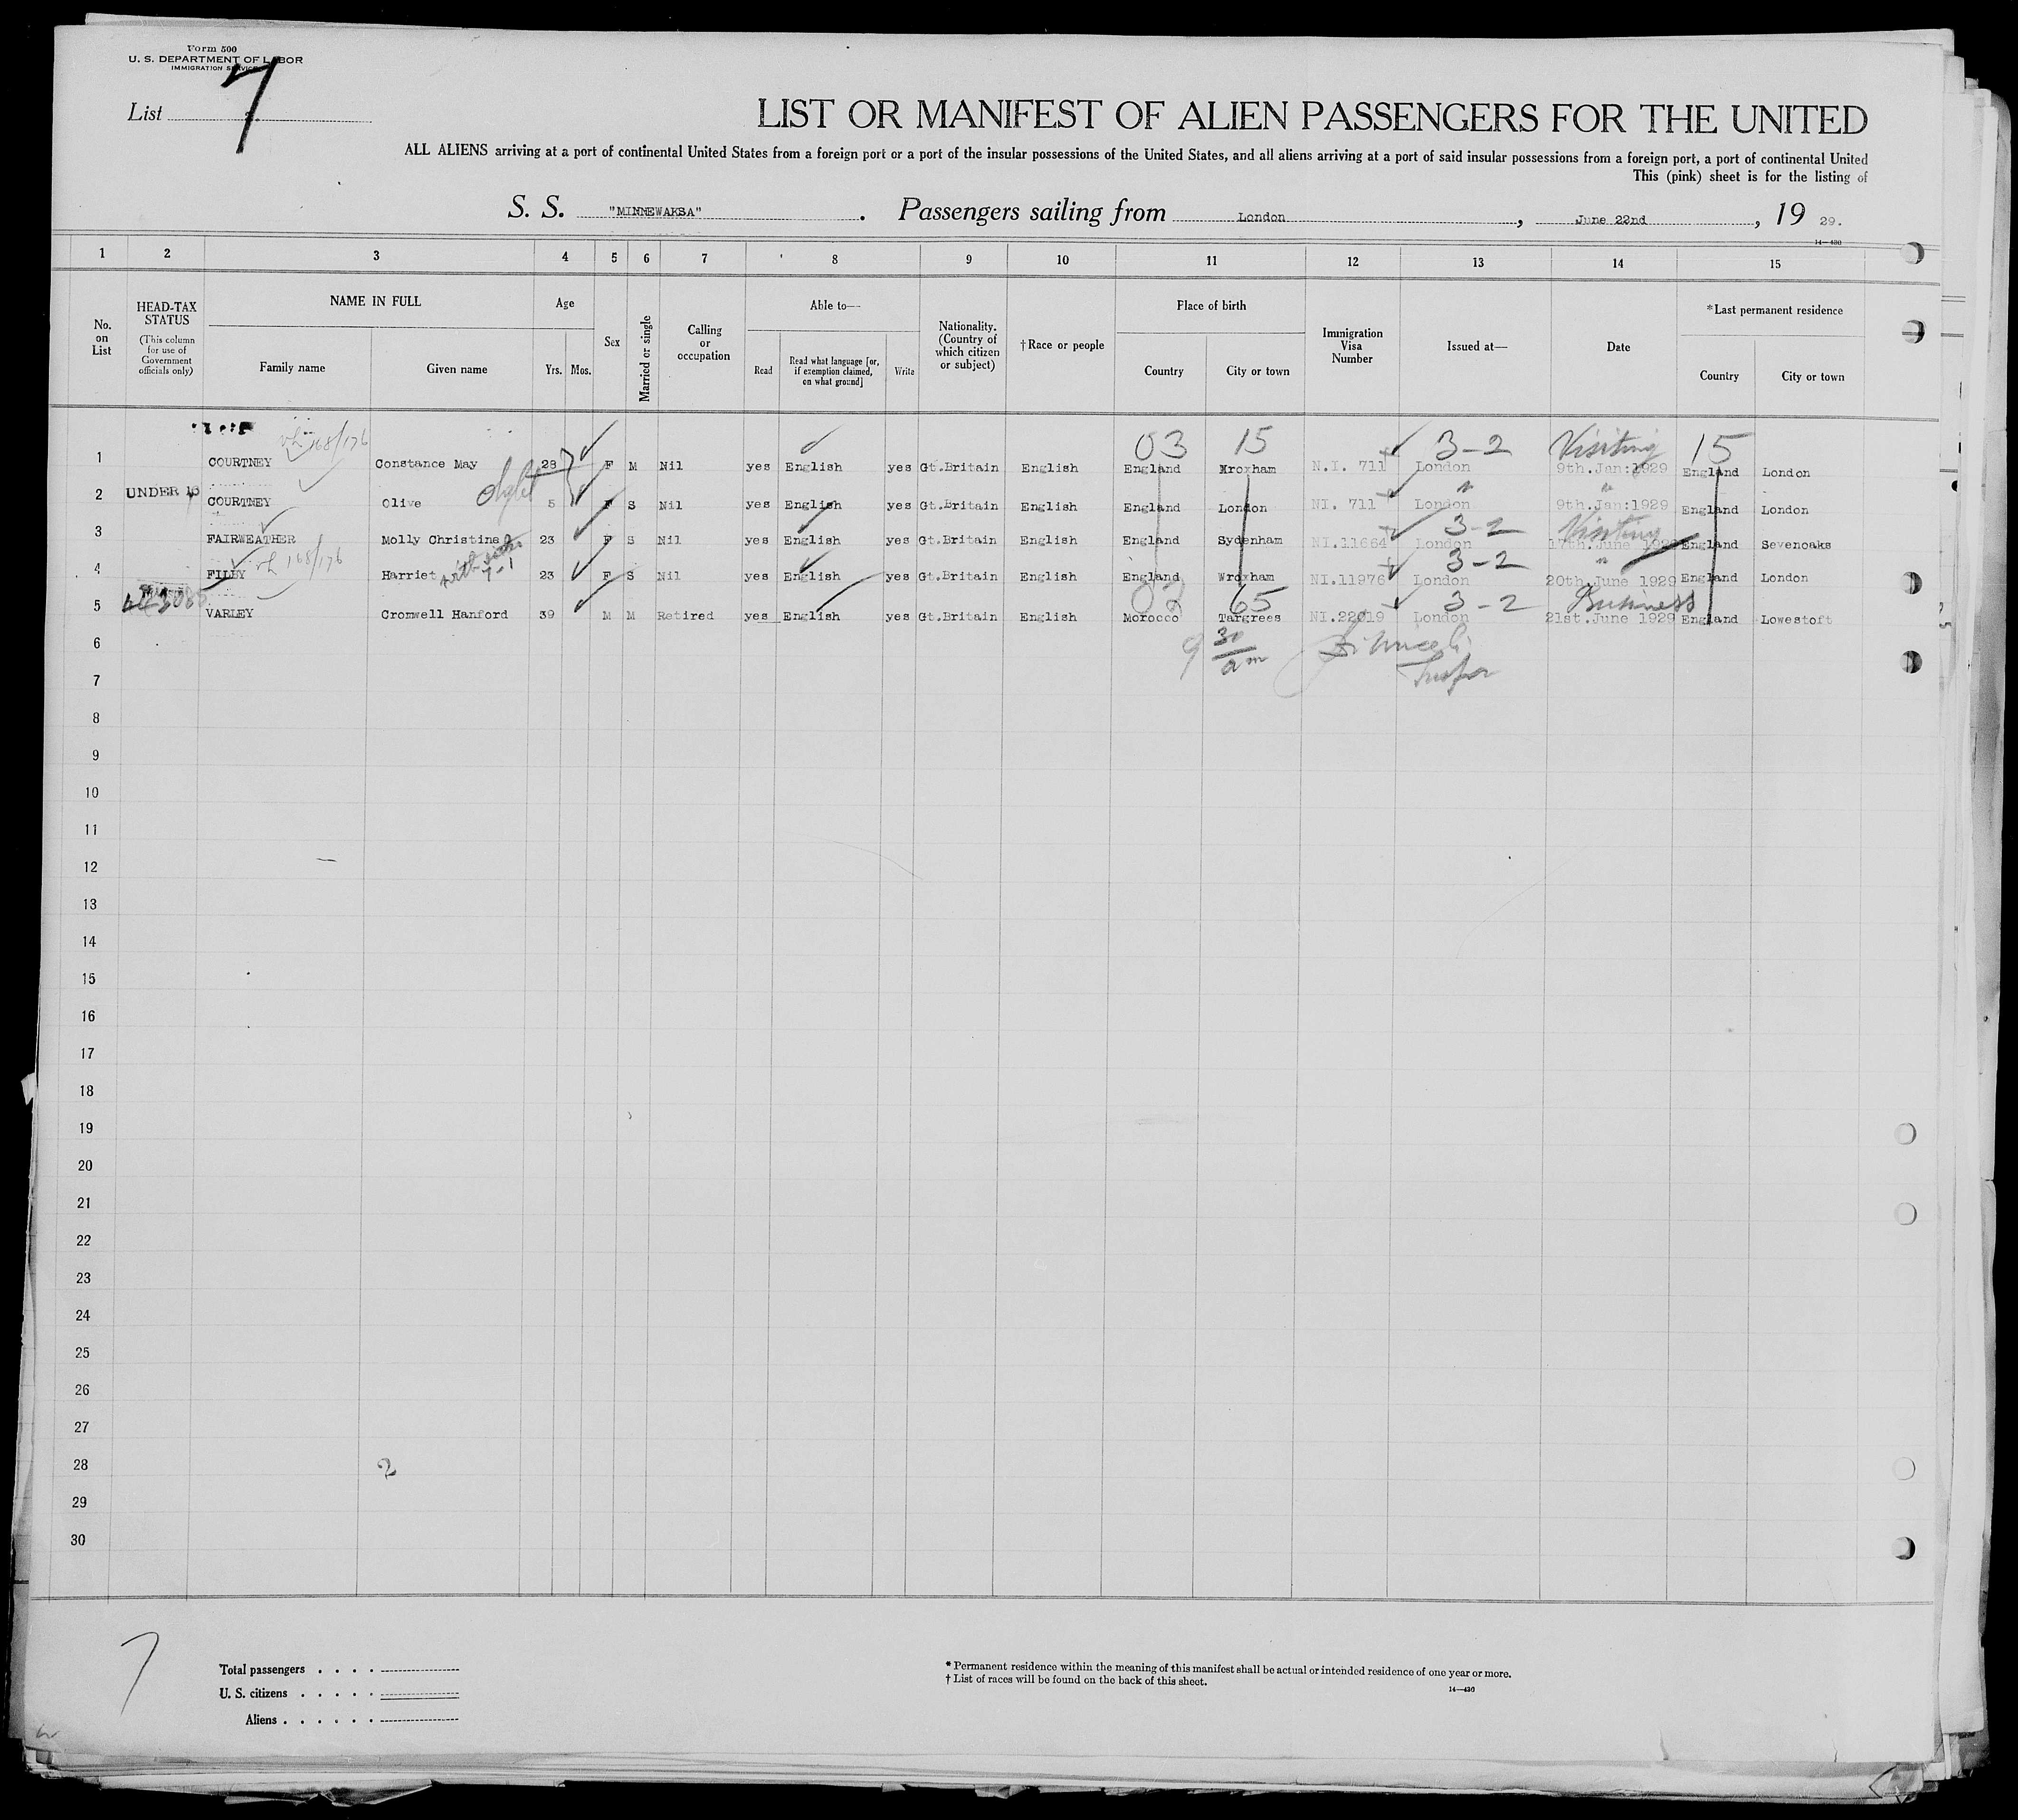 Form 500
U. S. DEPARTMENT OF LABOR
IMMIGRATION SERVICE
List 7
LIST OR MANIFEST OF ALIEN PASSENGERS FOR THE UNITED
ALL ALIENS arriving at a port of continental United States from a foreign port or a port of the insular possessions of the United States, and all aliens arriving at a port of said insular possessions from a foreign port, a port of continental United
This (pink) sheet is for the listing of
S. S. "MINNEWAKSA". Passengers sailing from London, June 22nd, 19 29.
14—430
1 2 3 4 5 6 7 8 9 10 11 12 13 14 15
No. on List
HEAD-TAX STATUS
(This column for use of Government officials only)
NAME IN FULL
Family name
Given name
Age
Yrs. Mos.
Sex
Married or single
Calling or occupation
Able to—
Read
Read what language [or, if exemption claimed, on what ground]
Write
Nationality. (Country of which citizen or subject)
†Race or people
Place of birth
Country
City or town
Immigration Visa Number
Issued at—
Date
*Last permanent residence
Country
City or town
168/176 03 15 3-2 Visiting 15
1 COURTNEY Constance May 28 F M Nil yes English yes Gt.Britain English England Wroxham N.I. 711 London 9th.Jan:1929 England London
2 UNDER 16 COURTNEY Olive 5 F S Nil yes English yes Gt.Britain English England London NI. 711 London 9th.Jan:1929 England London
3-2 Visiting
3 FAIRWEATHER Molly Christina 23 F S Nil yes English yes Gt.Britain English England Sydenham NI.11664 London 17th.June 1929 England Sevenoaks
168/176 3-2 "
4 FILBY Harriet 23 F S Nil yes English yes Gt.Britain English England Wroxham NI.11976 London 20th.June 1929 England London
02 65 3-2 Business
5 VARLEY Cromwell Hanford 39 M M Retired yes English yes Gt.Britain English Morocco Targrees NI.22019 London 21st.June 1929 England Lowestoft
9 30 am
6
7
8
9
10
11
12
13
14
15
16
17
18
19
20
21
22
23
24
25
26
27
28 2
29
30
7
Total passengers
U. S. citizens
Aliens
* Permanent residence within the meaning of this manifest shall be actual or intended residence of one year or more.
† List of races will be found on the back of this sheet.
14—430